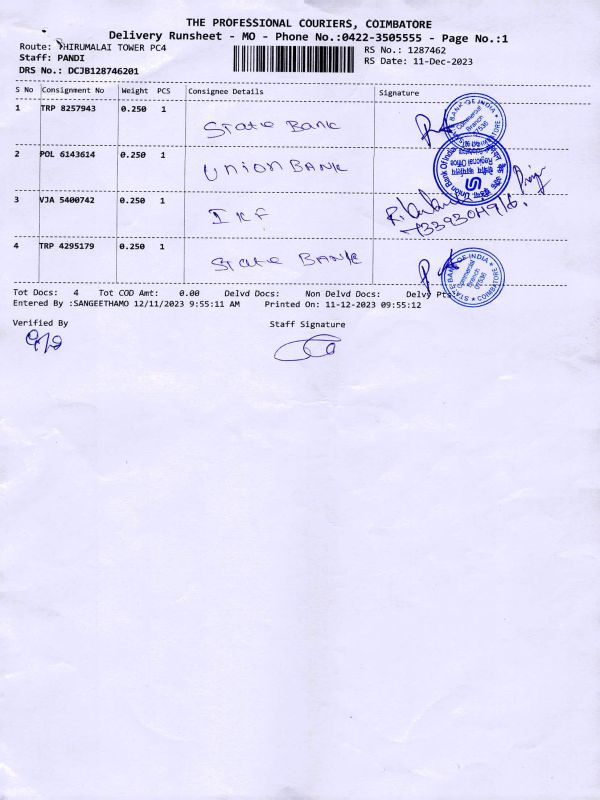 THE PROFESSIONAL COURIERS, COIMBATORE
Delivery Runsheet - MO - Phone No.:0422-3505555 - Page No.:1
Route: THIRUMALAI TOWER PC4 RS No.: 1287462
Staff: PANDI RS Date: 11-Dec-2023
DRS No.: DCJB128746201
S No Consignment No Weight PCS Consignee Details Signature
1 TRP 8257943 0.250 1 State Bank
2 POL 6143614 0.250 1 UNION BANK
3 VJA 5400742 0.250 1 IKF
4 TRP 4295179 0.250 1 State BANK
STATE BANK OF INDIA
Commercial
Branch
COIMBATORE
Union Bank Of India
Regional Office
STATE BANK OF INDIA
Commercial
Branch
COIMBATORE
Tot Docs: 4 Tot COD Amt: 0.00 Delvd Docs: Non Delvd Docs: Delvy Pts:
Entered By :SANGEETHAMO 12/11/2023 9:55:11 AM Printed On: 11-12-2023 09:55:12
Verified By Staff Signature